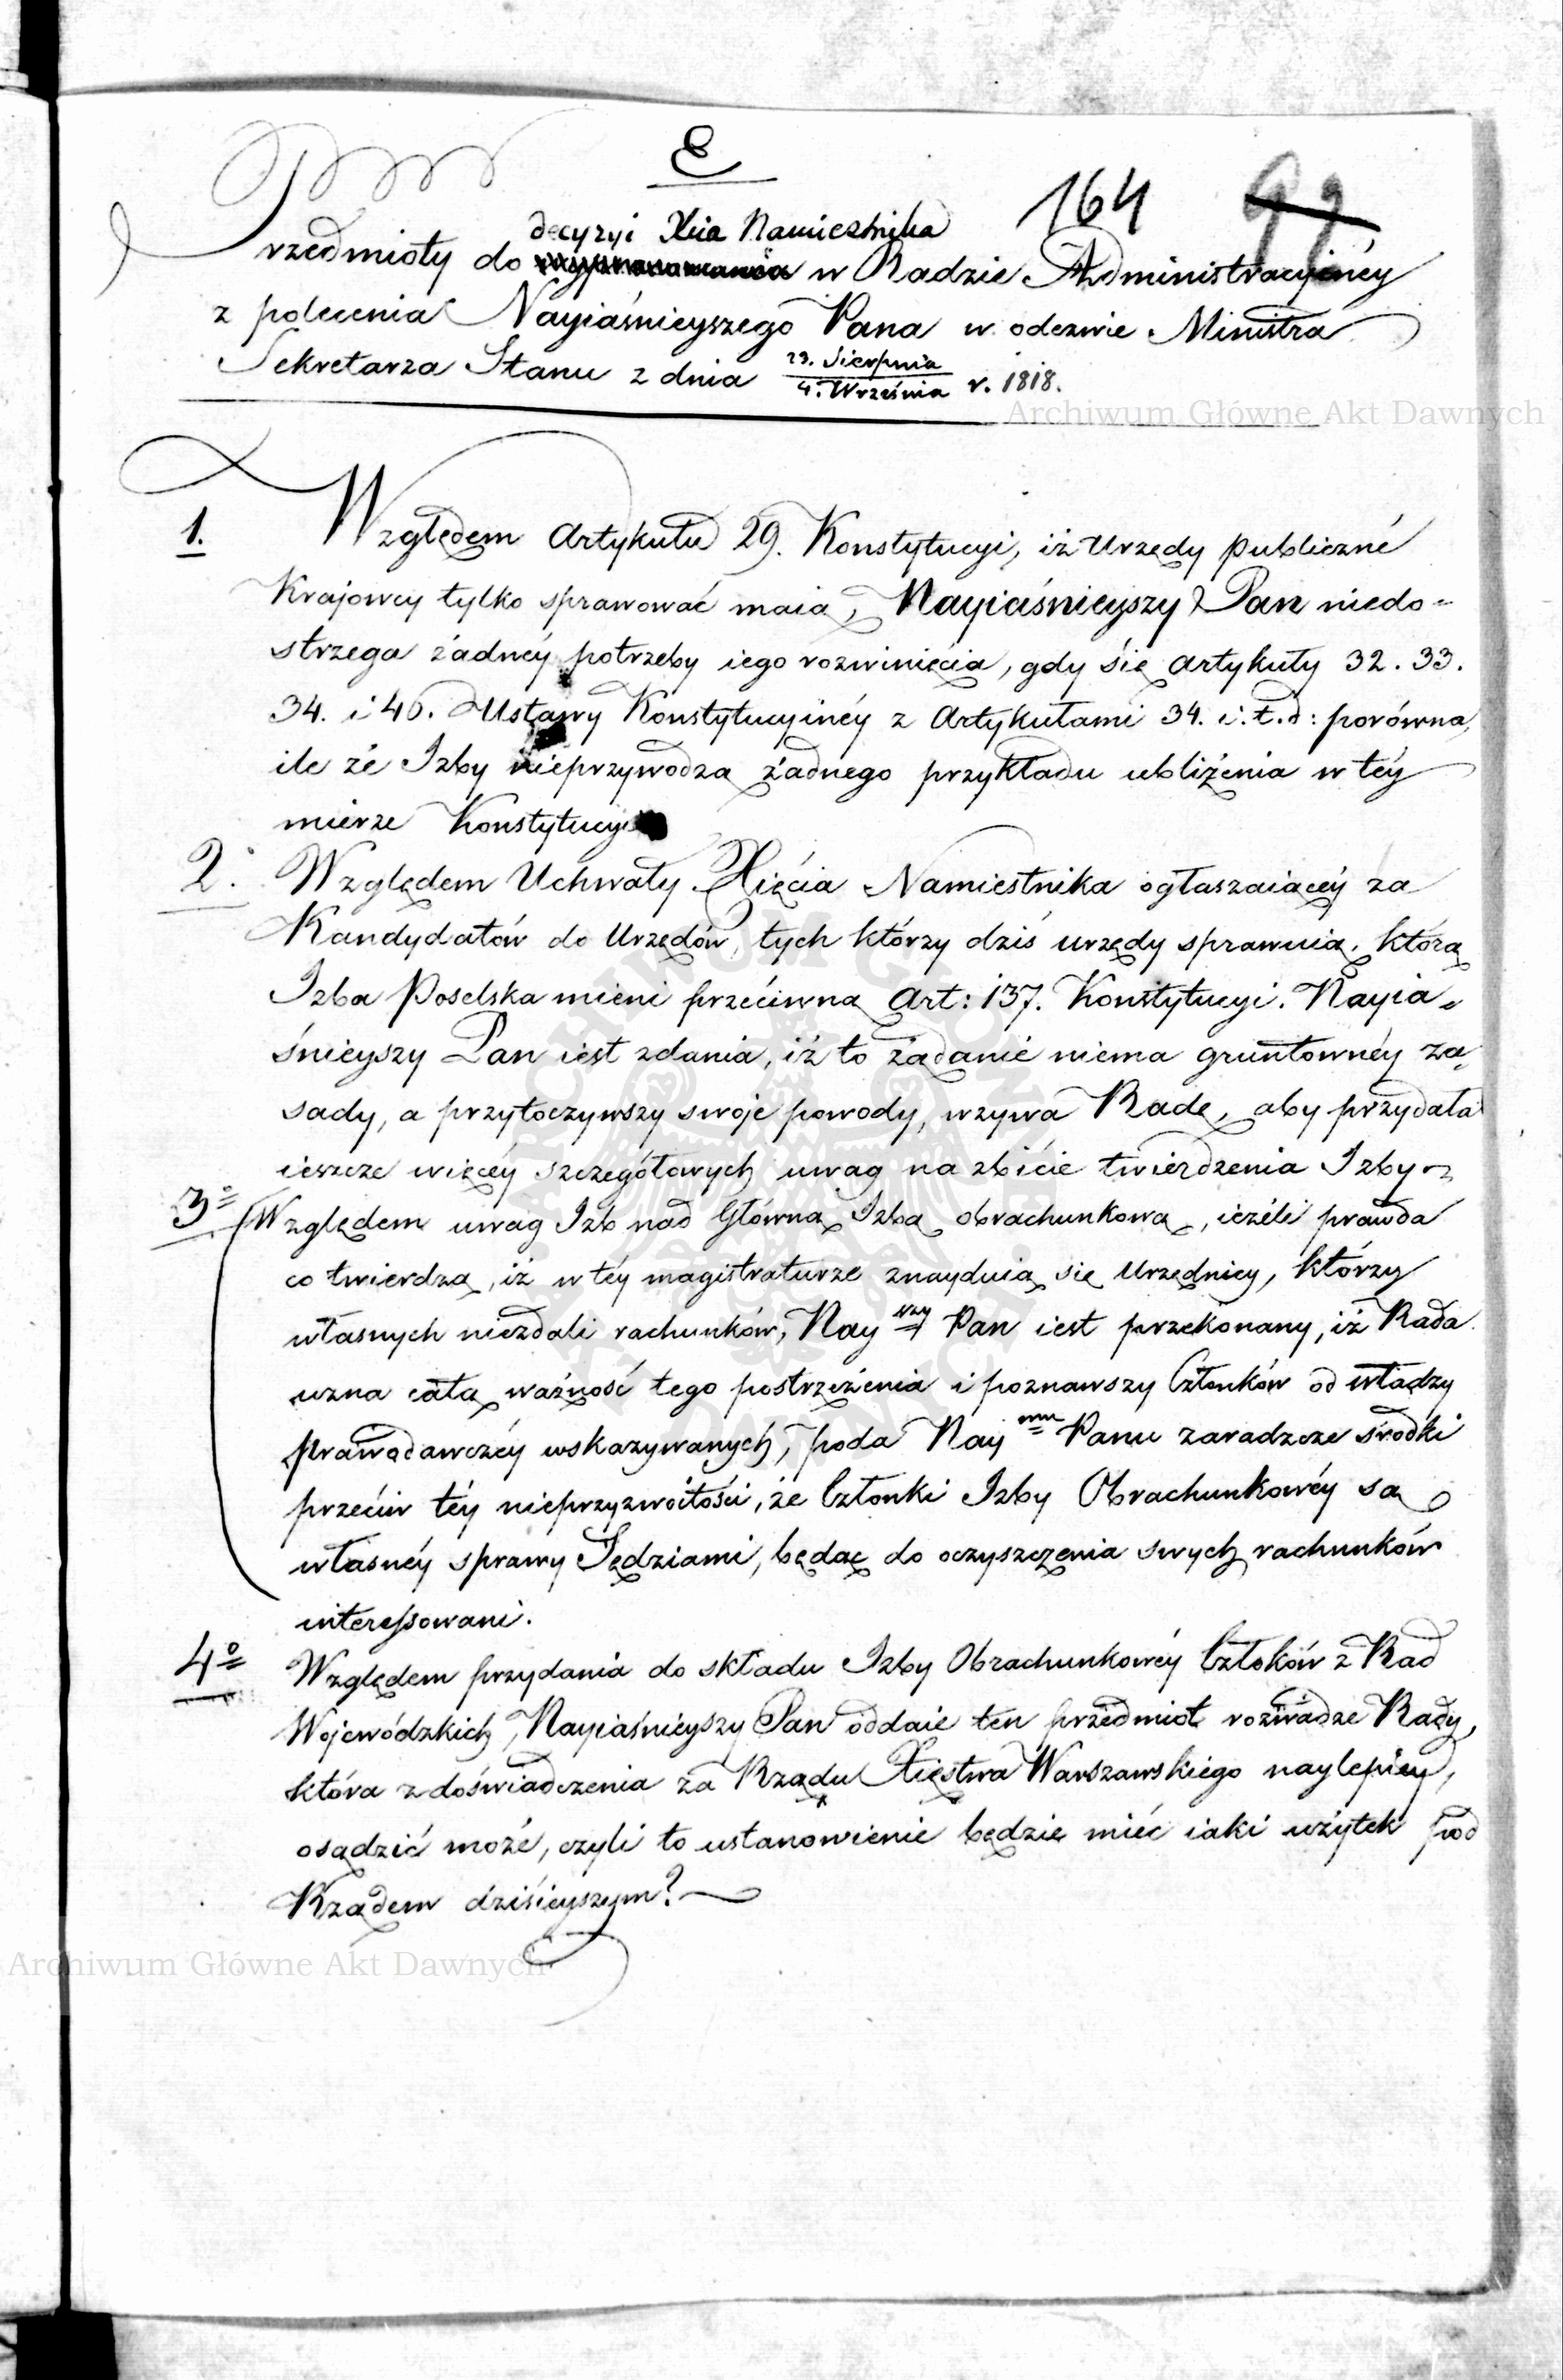 E
164 99
decyzyi Xcia Namiestnika
Przedmioty do w Radzie Administracyinéy
z polecenia Nayiaśnieyszego Pana w odezwie Ministra
Sekretarza Stanu z dnia 23. Sierpnia / 4. Września r. 1818.
Archiwum Główne Akt Dawnych
1. Względem Artykułu 29. Konstytucyi, iż Urzędy publiczné
Krajowcy tylko sprawować maią, Nayiaśnieyszy Pan niedo=
strzega żadnéy potrzeby iego rozwinięcia, gdy się Artykuły 32. 33.
34. i 46. Ustawy Konstytucyinéy z Artykułami 34. i.t.d: porówna,
ile że Izby nieprzywodzą żadnego przykładu ubliżenia w téy
mierze Konstytucyi
2. Względem Uchwały Xięcia Namiestnika ogłaszaiącéy za
Kandydatów do Urzędów, tych którzy dziś urzędy sprawuią, którą
Izba Poselska mieni przeciwną Art: 137. Konstytucyi. Nayia=
śnieyszy Pan iest zdania, iż to żądanie niema gruntownéy za=
sady, a przytoczywszy swoje powody, wzywa Radę, aby przydała
ieszcze więcéy szczegółowych uwag na zbicie twierdzenia Izby
3o Względem uwag Izb nad Główną Izbą obrachunkową, ieżeli prawda
co twierdzą, iż w téy magistraturze znayduią się Urzędnicy, którzy
własnych niezdali rachunków, Nayszy Pan iest przekonany, iż Rada
uzna całą ważność tego postrzeżenia i poznawszy Członków od władzy
prawodawczéy wskazywanych, poda Nayemu Panu zaradzcze środki
przeciw téy nieprzyzwoitości, że Członki Izby Obrachunkowéy są
własnéy sprawy Sędziami, będąc do oczyszczenia swych rachunków
interessowani.
4o Względem przydania do składu Izby Obrachunkowéy Człoków z Rad
Wojewódzkich, Nayiaśnieyszy Pan oddaie ten przedmiot rozwadze Rady,
która z doświadczenia za Rządu Xięstwa Warszawskiego naylepiey,
osądzić może, czyli to ustanowienie będzie mieć iaki użytek pod
Rządem dzisieyszym?
Archiwum Główne Akt Dawnych